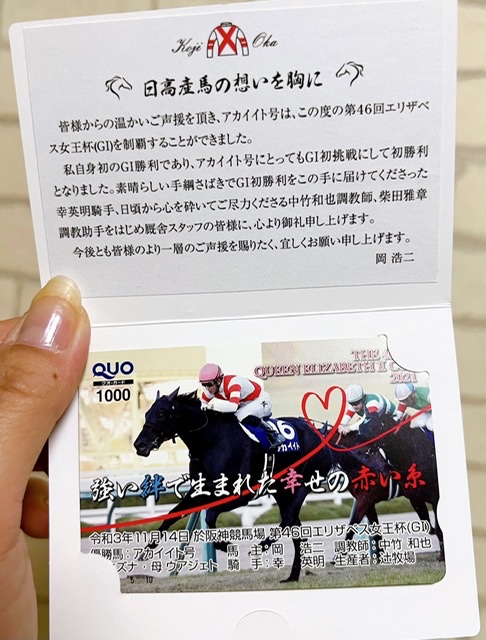 Koji Oka
日高産馬の想いを胸に
皆様からの温かいご声援を頂き、アカイイト号は、この度の第46回エリザベ
ス女王杯(GI)を制覇することができました。
私自身初のGI勝利であり、アカイイト号にとってもGI初挑戦にして初勝利
となりました。素晴らしい手綱さばきでGI初勝利をこの手に届けてくださった
幸英明騎手、日頃から心を砕いてご尽力くださる中竹和也調教師、柴田雅章
調教助手をはじめ厩舎スタッフの皆様に、心より御礼申し上げます。
今後とも皆様のより一層のご声援を賜りたく、宜しくお願い申し上げます。
岡 浩二
QUO
クオ・カード
1000
THE 4
QUEEN ELIZABETH II C
2021
アカイイト
強い絆で生まれた幸せの赤い糸
令和3年11月14日 於阪神競馬場 第46回エリザベス女王杯(GI)
優勝馬:アカイイト号 馬主:岡 浩二 調教師:中竹 和也
ズナ・母 ウアジェト 騎手:幸 英明 生産者:辻牧場
5 10